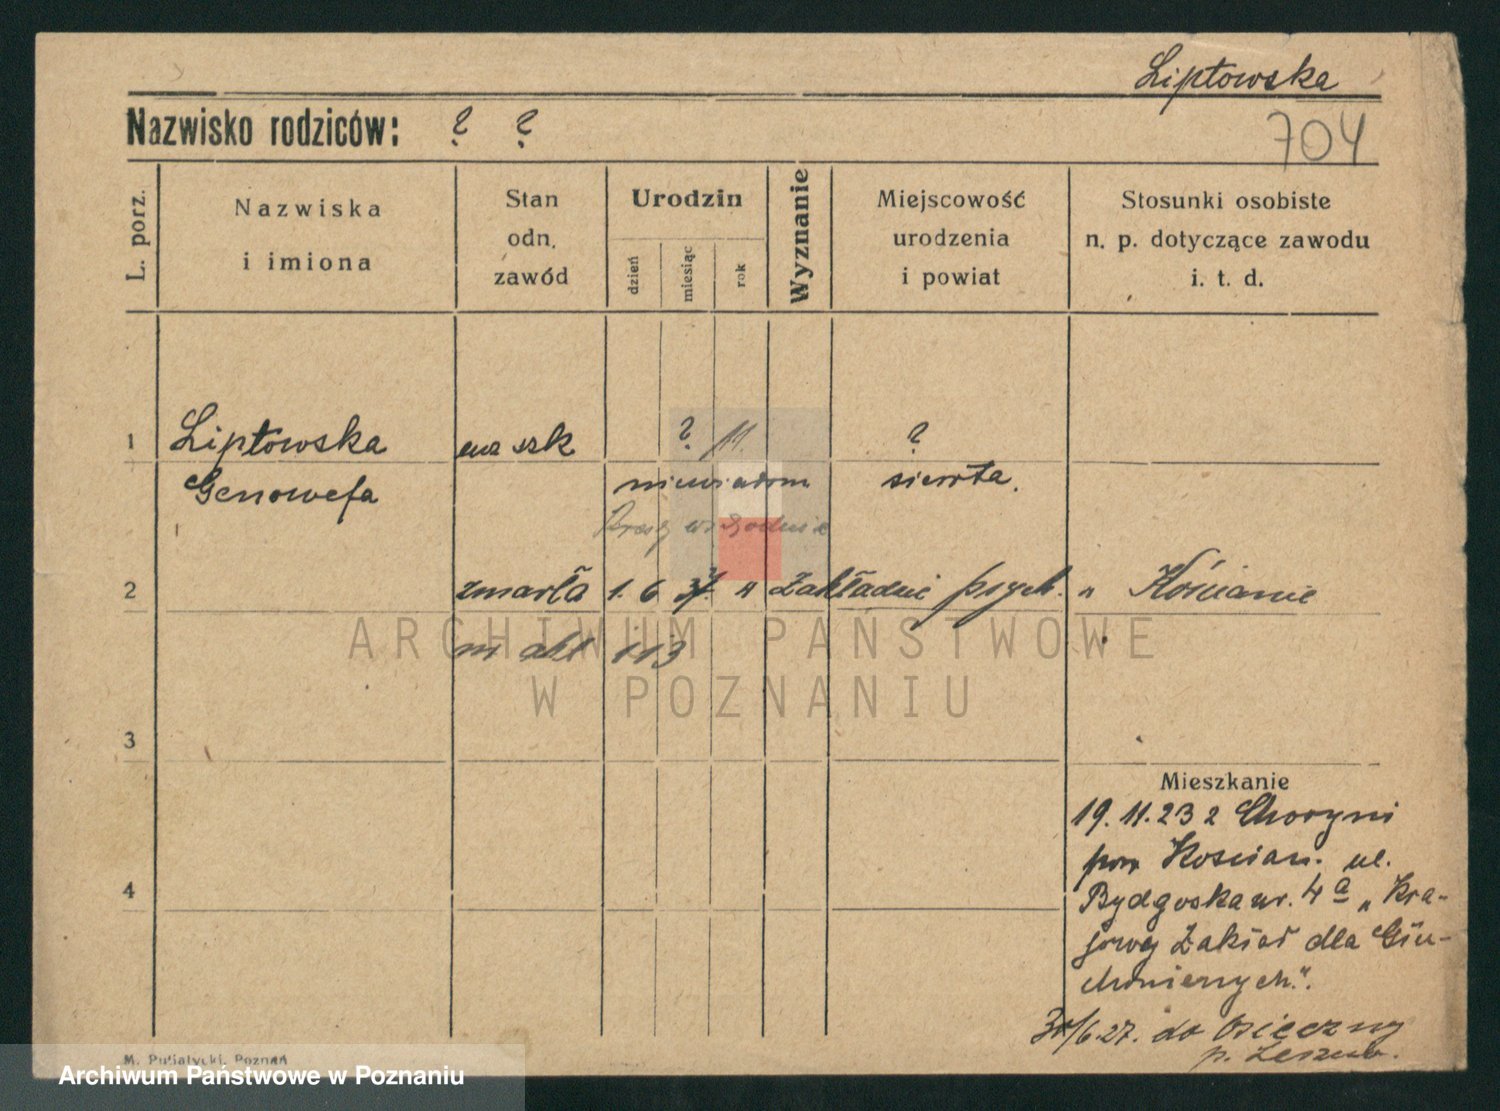 Liptowska
Nazwisko rodziców: ? ?
704
L. porz.
Nazwiska
i imiona
Stan
odn.
zawód
Urodzin
dzień
miesiąc
rok
Wyznanie
Miejscowość
urodzenia
i powiat
Stosunki osobiste
n. p. dotyczące zawodu
i. t. d.
1 Liptowska ucz szk ? 11. ?
Genowefa niewiadom sierota.
2 zmarła 1. 6 37. w Zakładzie psych. w Kościanie
nr akt 113
ARCHIWUM PAŃSTWOWE
W POZNANIU
3
Mieszkanie
19. 11. 23 z Choryni
pow Kościan. ul.
4
Bydgoska nr. 4 a „Kra-
jowy Zakład dla Głu-
choniemych“.
30/6.27. do Osieczny
p. Leszno.
M. Putiatycki, Poznań
Archiwum Państwowe w Poznaniu